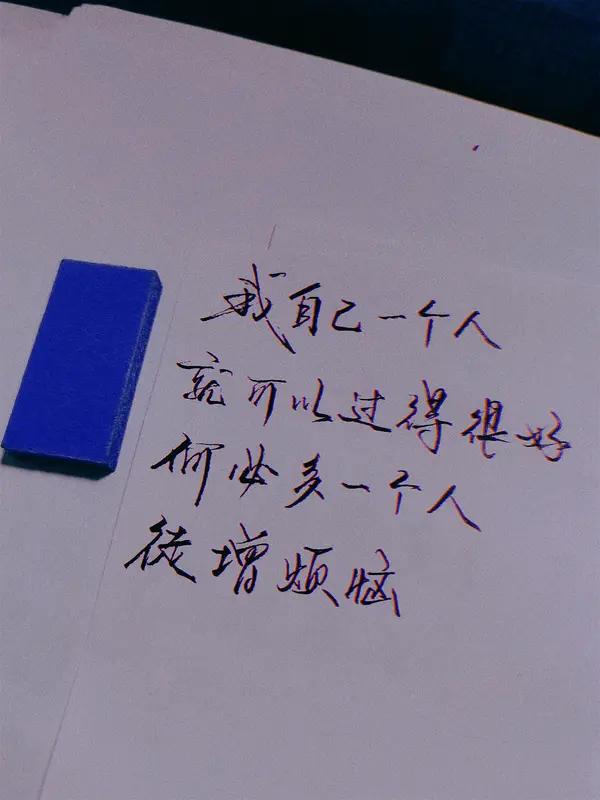 我自己一个人
就可以过得很好
何必多一个人
徒增烦恼